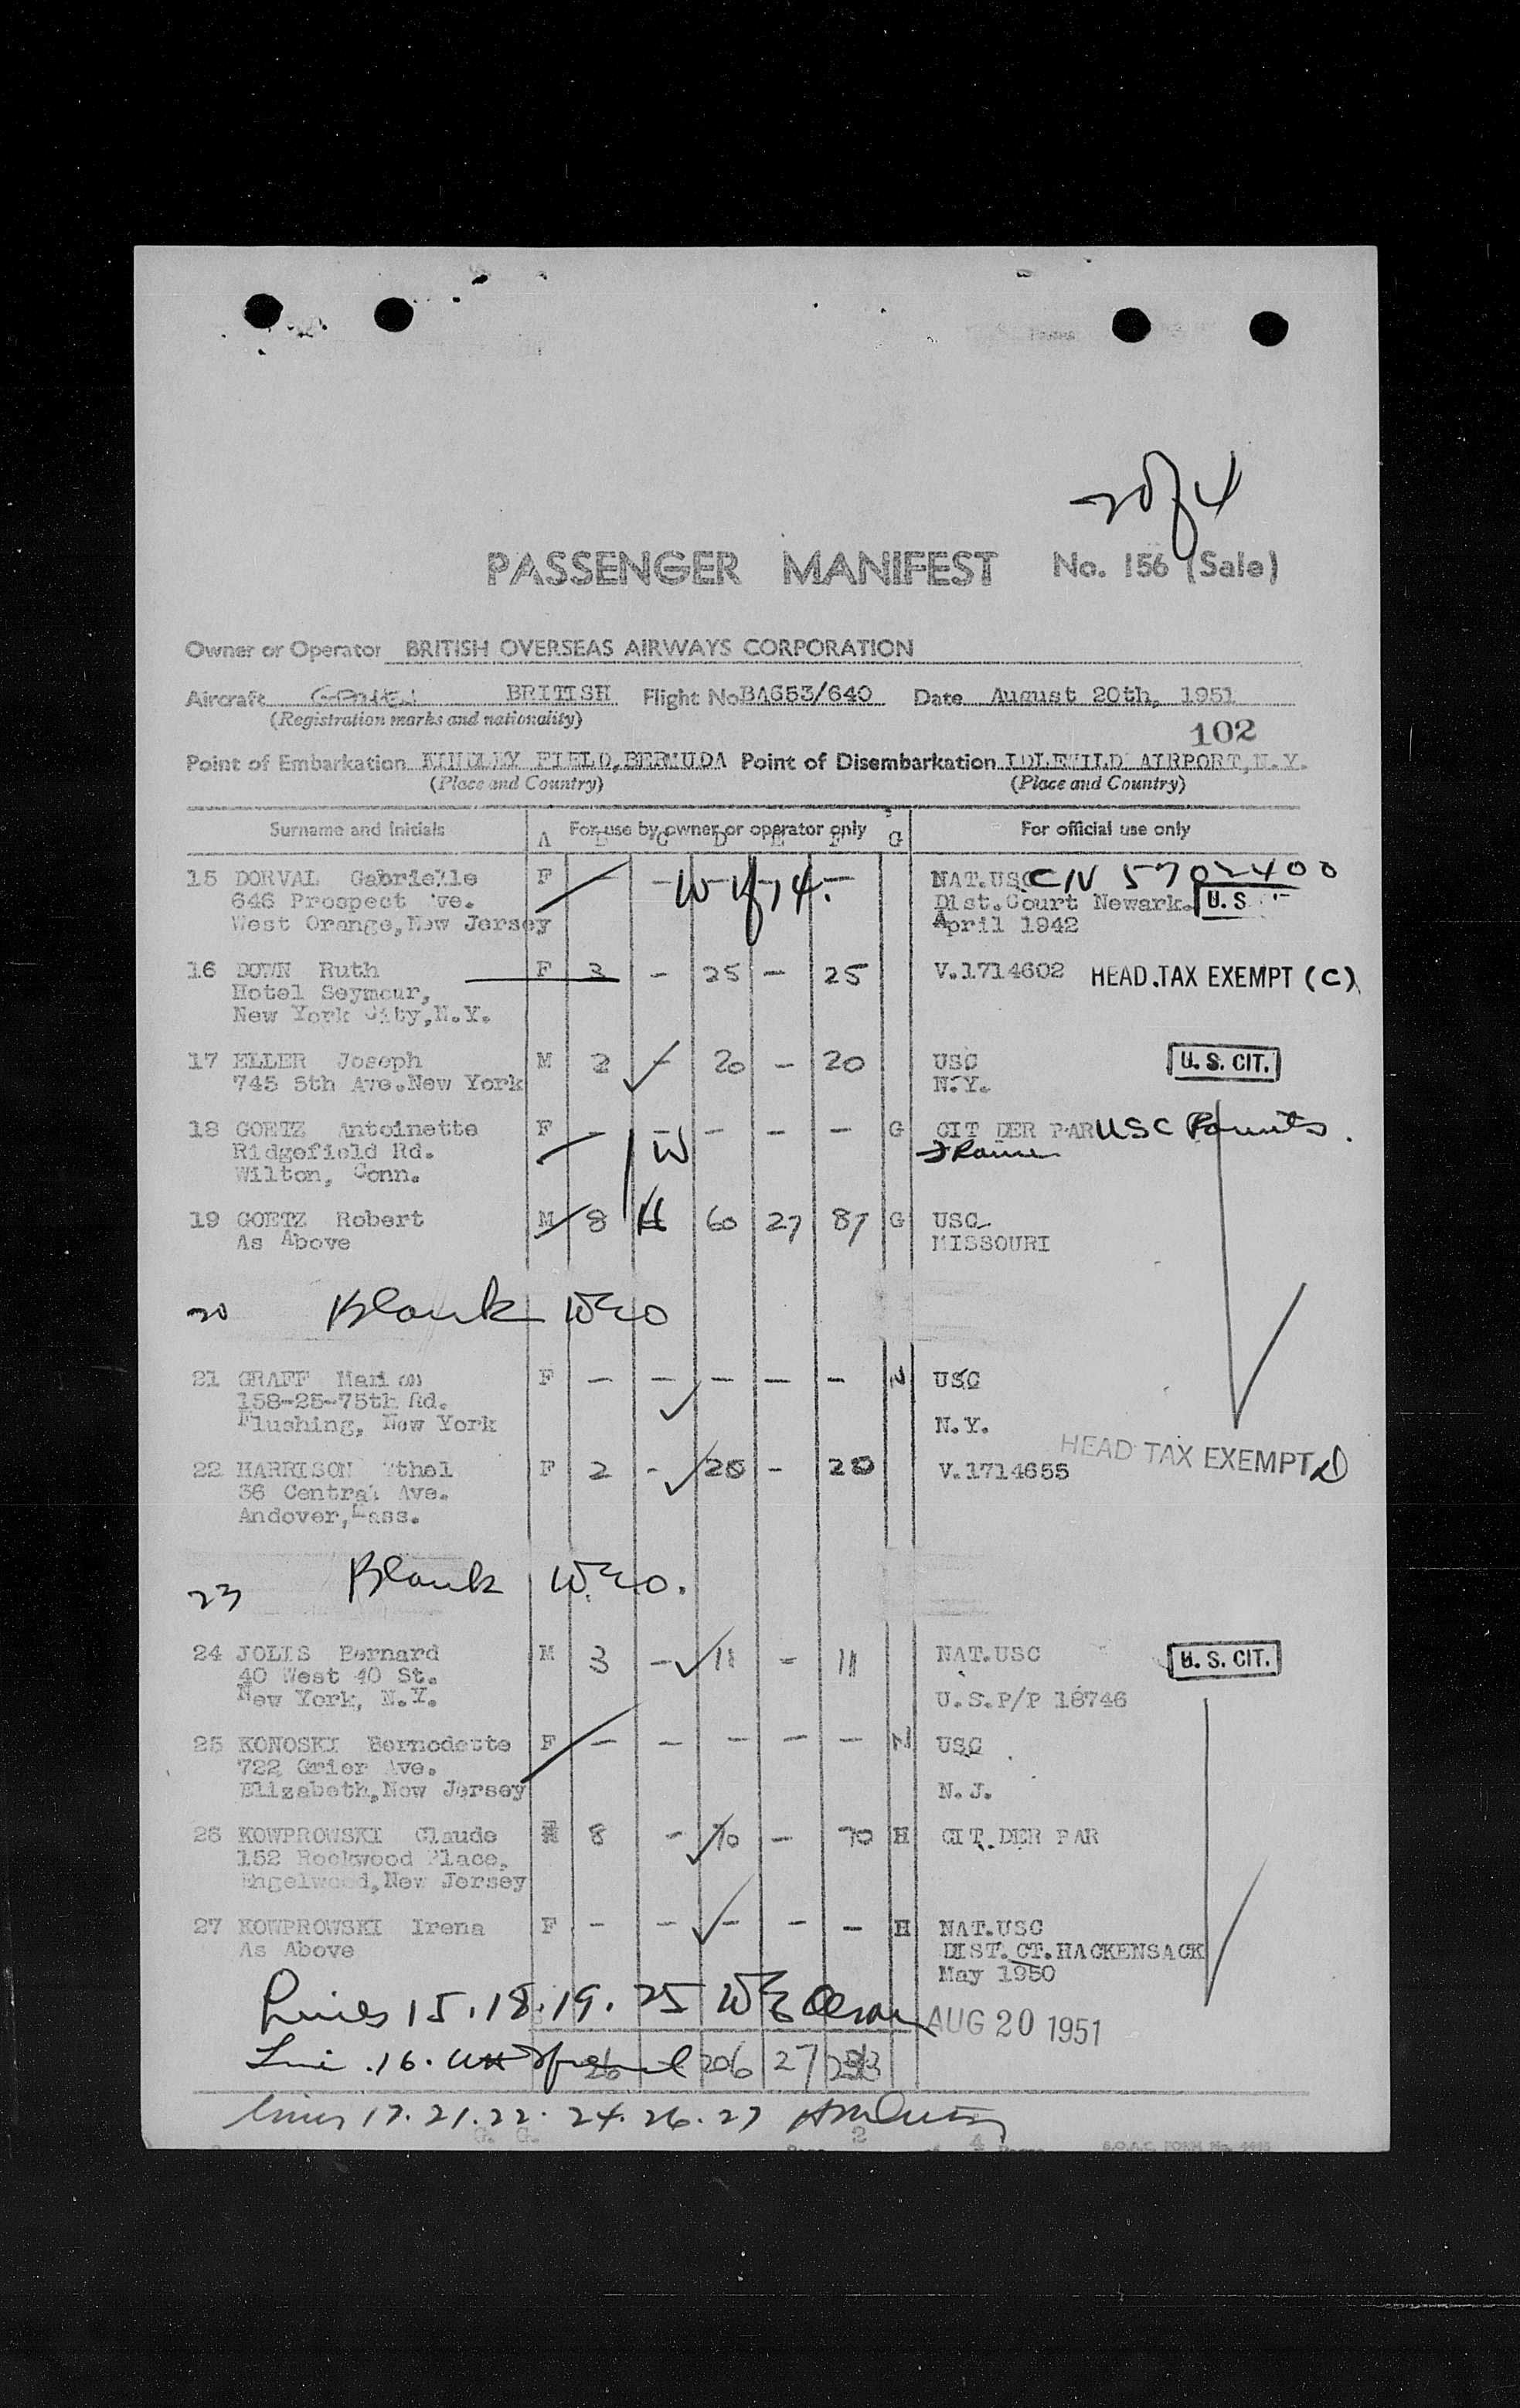 2 of 4
PASSENGER MANIFEST No. 156 (Sale)
Owner or Operator BRITISH OVERSEAS AIRWAYS CORPORATION
Aircraft BRITISH Flight No BA653/640 Date August 20th, 1951
(Registration marks and nationality)
102
Point of Embarkation KINDLEY FIELD, BERMUDA Point of Disembarkation IDLEWILD AIRPORT, N.Y.
(Place and Country) (Place and Country)
Surname and Initials For use by owner or operator only For official use only
A B C D E F G
15 DORVAL Gabrielle F - W 14 - NAT.USC C/N 5702400
646 Prospect Ave. Dist.Court Newark. U.S
West Orange, New Jersey April 1942
16 DOWN Ruth F 3 - 25 - 25 V.1714602 HEAD TAX EXEMPT (C)
Hotel Seymour,
New York City, N.Y.
17 ELLER Joseph M 2 - 20 - 20 USC U. S. CIT.
745 5th Ave. New York N.Y.
18 GOETZ Antoinette F - - - - - G CIT DER PAR USC Parents.
Ridgefield Rd. W
Wilton, Conn.
19 GOETZ Robert M 8 60 27 87 G USC
As Above MISSOURI
20 Blank WEO
21 GRAFF Marion F - - - - - N USC
158-25-75th Rd.
Flushing, New York N.Y.
22 HARRISON Ethel F 2 - 20 - 20 V.1714655 HEAD TAX EXEMPT
36 Central Ave.
Andover, Mass.
23 Blank W.E.O.
24 JOLIS Bernard M 3 - 11 - 11 NAT.USC U. S. CIT.
40 West 40 St.
New York, N.Y. U.S.P/P 18746
25 KONOSKI Bernodette F - - - - - N USC
722 Grier Ave.
Elizabeth, New Jersey N.J.
26 KOWPROWSKI Claude 8 - 70 - 70 H CIT. DER PAR
152 Rockwood Place,
Engelwood, New Jersey
27 KOWPROWSKI Irena F - - - - - H NAT.USC
As Above DIST. CT. HACKENSACK
May 1950
Lines 15.18.19.25 WE Olson AUG 20 1951
Line .16. 26 206 27
Lines 17.21.22.24.26.27
G. G. 2 4